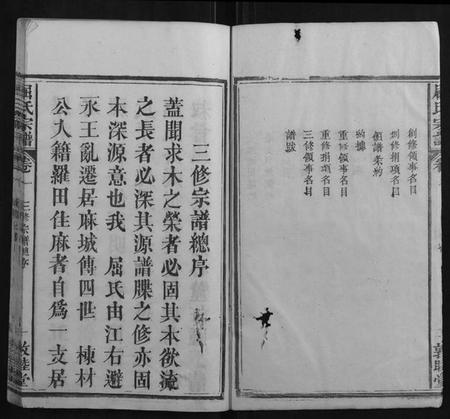 創修領事名目
創修捐項名目
領譜柒約
物據
重修捐項名目
重修領事名目
三修領事名目
譜跋
敦睦堂
三修宗譜總序
蓋聞求木之榮者必固其本欲流
之長者必深其源譜牒之修亦固
本深源意也我 屈氏由江右避
永王亂遷居麻城傳四世 棟材
公入籍羅田住麻者自為一支居
屈氏宗譜
卷一
三修宗譜總序
一
敦睦堂